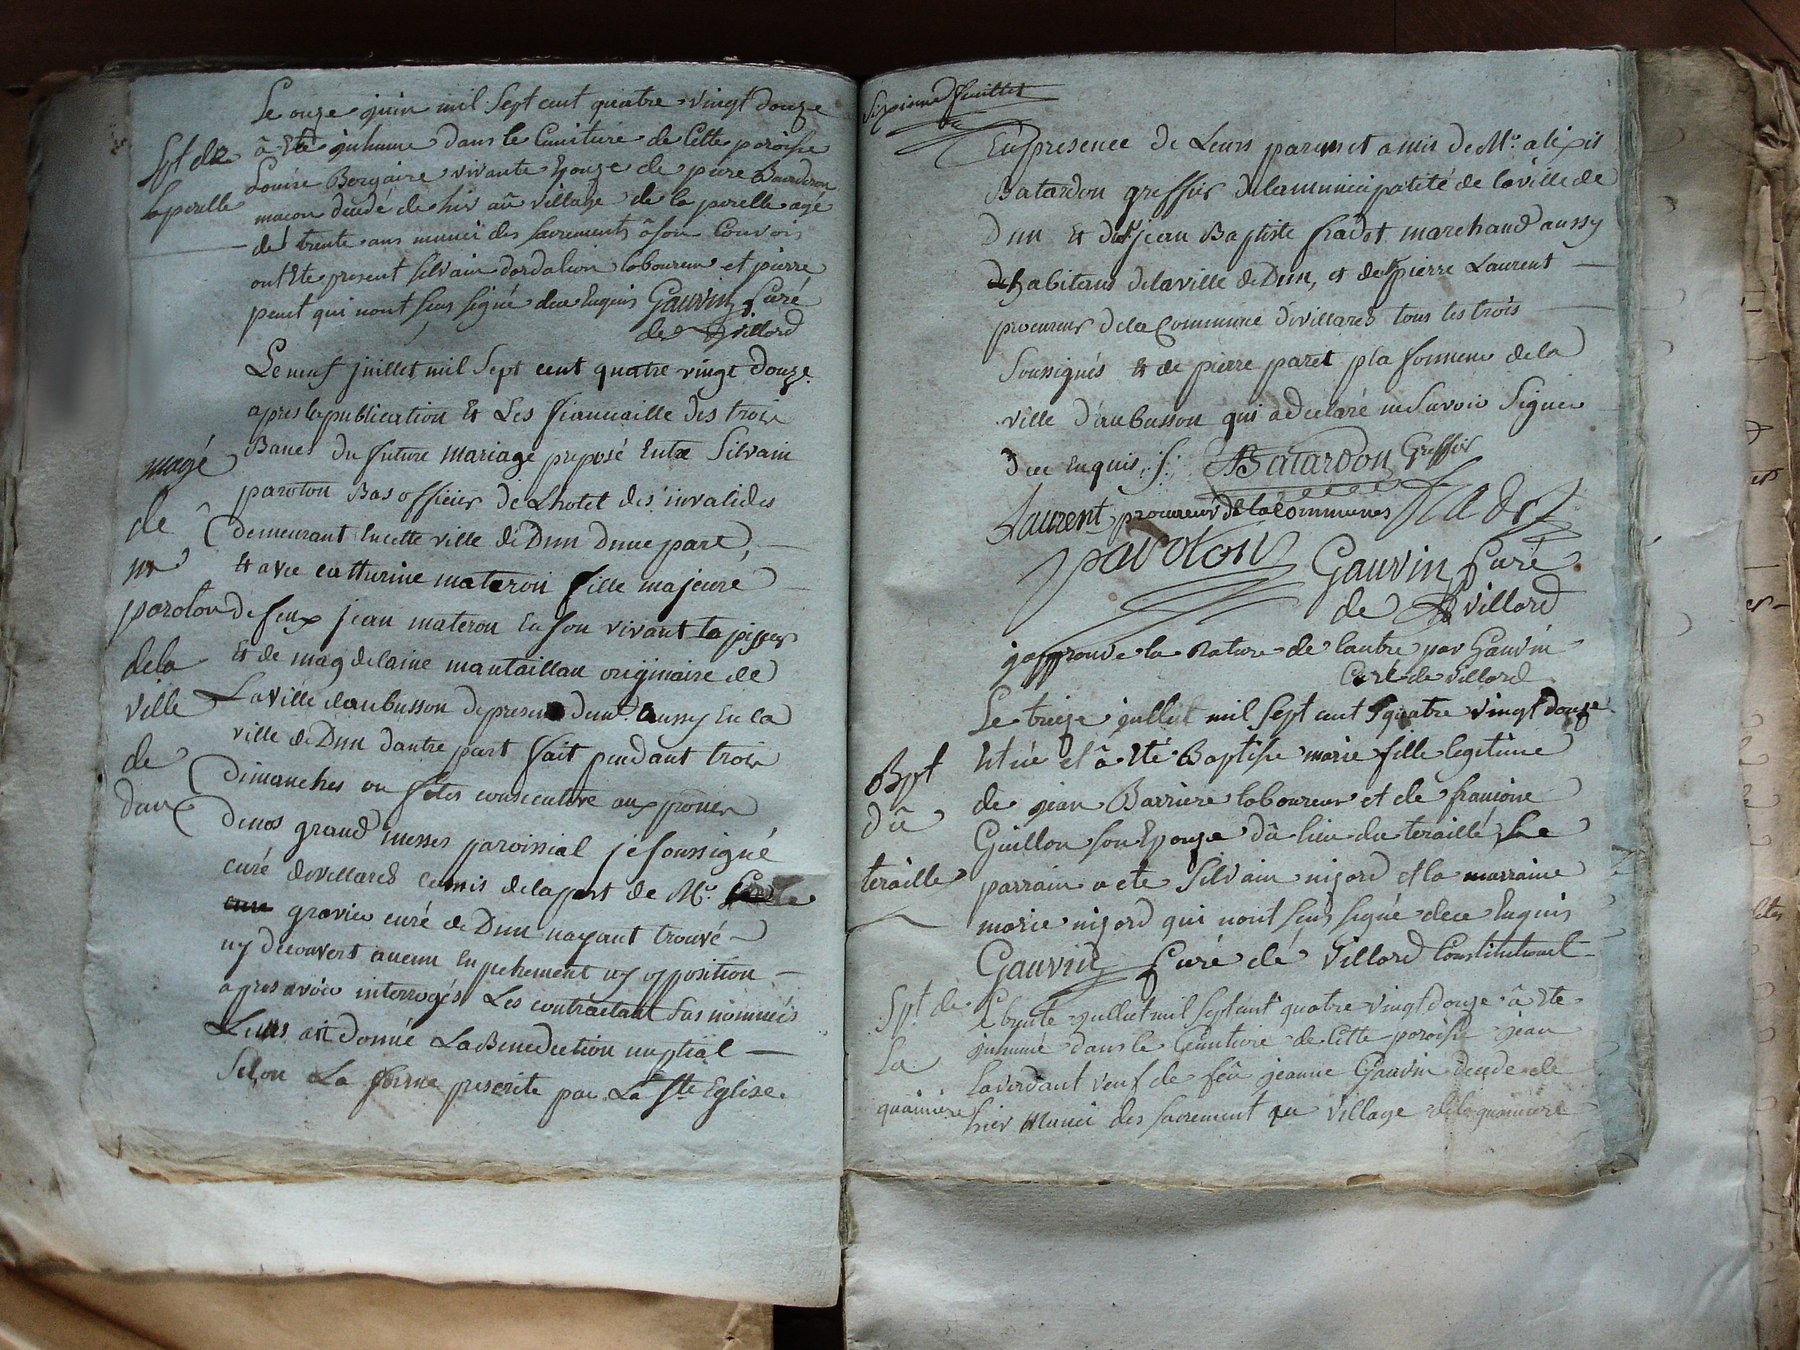 Le onze juin mil Sept cent quatre vingt douze
Spt de à Eté juhumé dans le Cimitiere de Cette paroisse
Louise Bergaire vivante Epouze de piere Bourderon
la perelle macon décédé de hier au village de la perelle agé
de trente ans munie des sacrements à son Convoi
ont Ete present silvain dardalion laboureur et pierre
peuct qui nont seus signé dece Enquis Gauvin Curé
de Villard
Le neuf juillet mil Sept cent quatre vingt douze
apres la publication Et Les fiancaille des trois
Bancs du future mariage proposé Entre Silvain
magé
paroton Bas officier de Lhotel des invalides
de
demeurant En cette ville de Dun Dune part,
mr
Et avec catturine materon fille majeure
paroton
de feux jean materon En son vivant tapissier
de la
Et de magdelaine mantaillau originaire de
ville
La ville daubusson de present dem.t aussy En La
de
ville de Dun dautre part fait pendant trois
dun
dimanches ou fetes consecutive aux prones
de nos grand messes paroissial je soussigné
curé devillard commis de la part de Mr.
gravier curé de Dun nayant trouvé
ny découvert aucun Enpechement ny opposition
apres avoir interrogés Les contractant sus nommés
Leurs ait donné La Benediction nuptial
Selon La forme prescrite par La Ste Eglise.
Sixieme feuillet
En presence de Leurs parens et amis de Mr. alixis
Batardon greffier de la municipalité de la ville de
Dun Et de Sr jean Baptiste fradet marchand aussy
habitant de la ville de Dun, et de pierre Laurent
procureur de la Commune de villard tous les trois
Soussignés Et de pierre paret plafonneur de la
ville d'aubusson qui a declaré ne Savoir Signer
dece Enquis .f. ABatardon Greffier
Laurent procureur de la communes fradet
paroton Gauvin Curé
de Villard
japprouve la Rature de lautre par Gauvin
Curé de villard
Le treize jullet mil sept cent quatre vingt douze
Bpt
Est né et à Eté Baptisée marie fille legitime
dû
de jean Barriere laboureur et de francoise
Guillon son Epouze dû lieu du teraillé Le
teraille
parrain a ete silvain nijord et la marraine
marie nijord qui nont seus signé dece Enquis
Gauvin Curé dé Villard Constitutionel
Spt de
le trente jullet mil sept cent quatre vingt douze à Ete
La
juhumé dans le Cimitiere de Cette paroisse jean
Laverdant veuf de feû jeanne Gauvin décédé de
quainiere
hier Munie des sacrement au village de la quainiere